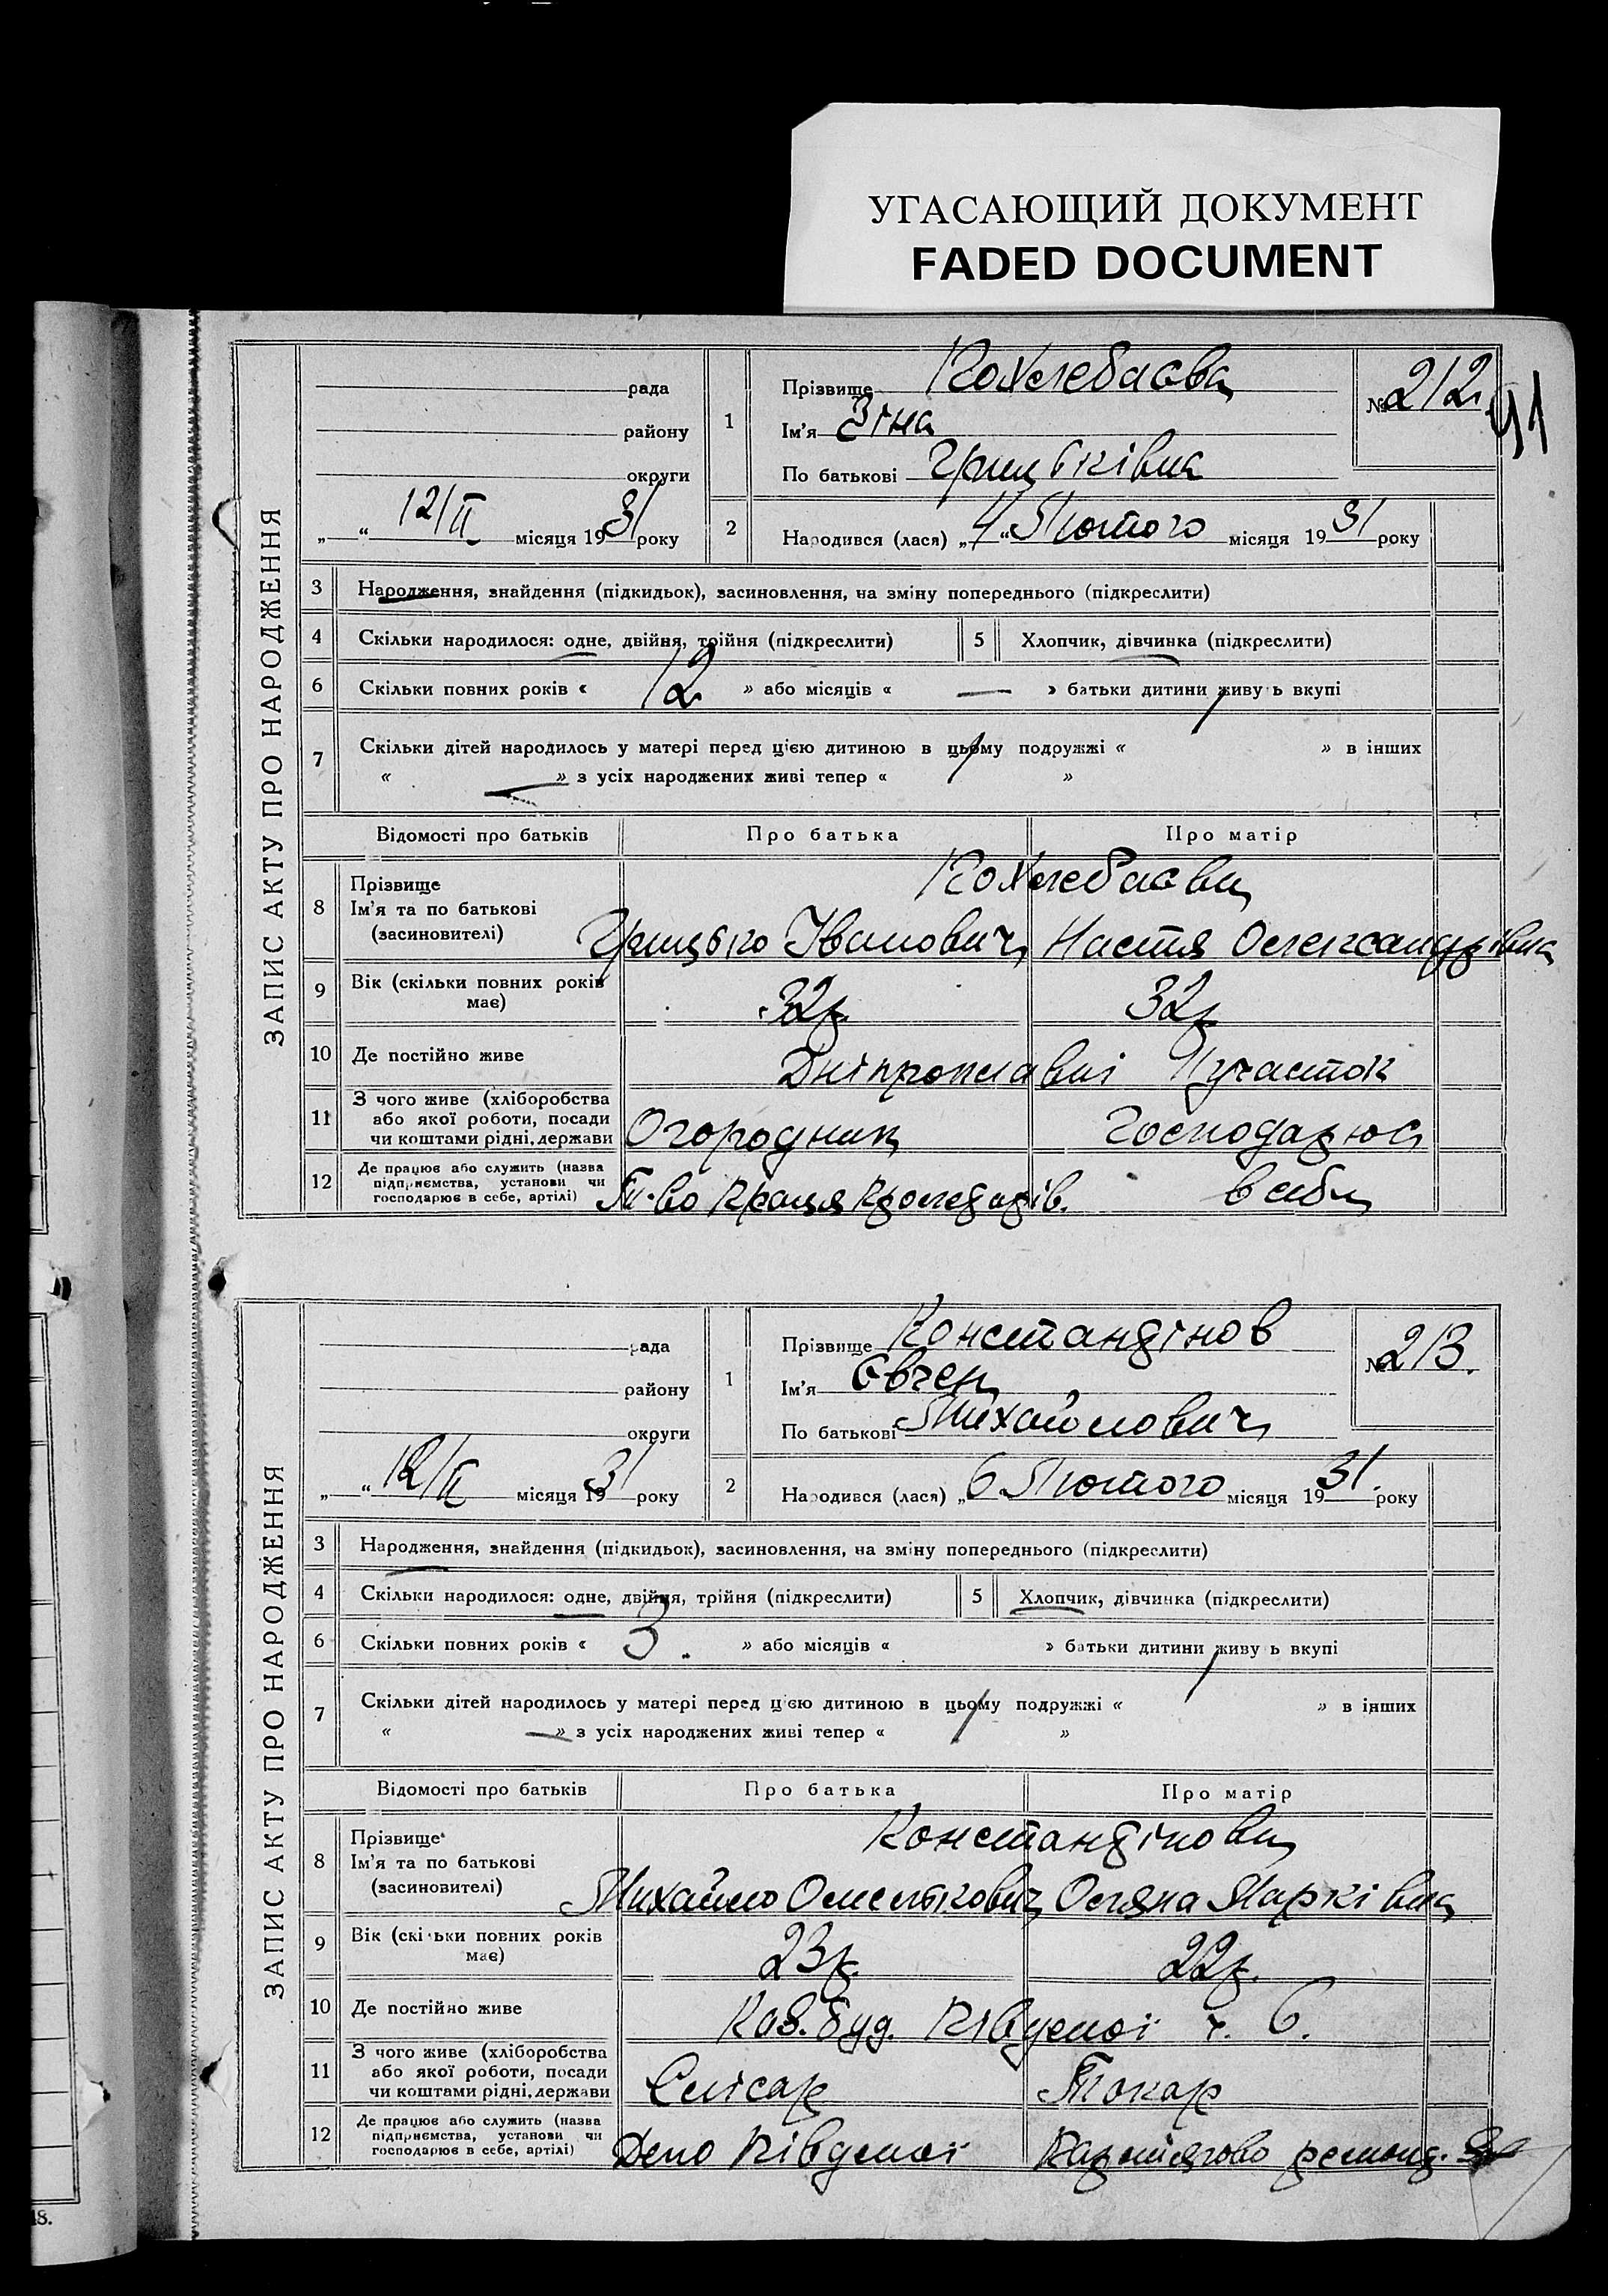 УГАСАЮЩИЙ ДОКУМЕНТ
FADED DOCUMENT
91
ЗАПИС АКТУ ПРО НАРОДЖЕННЯ
рада
району
округи
„ “ 12/II місяця 1931 року
1
Прізвище
Ім'я Зіна
По батькові Грицьківна
№ 212.
2 Народився (лася) „4“ Лютого місяця 1931 року
3 Народження, знайдення (підкидьок), засиновлення, на зміну попереднього (підкреслити)
4 Скільки народилося: одне, двійня, трійня (підкреслити) 5 Хлопчик, дівчинка (підкреслити)
6 Скільки повних років « 12 » або місяців « — » батьки дитини живуть вкупі
7 Скільки дітей народилось у матері перед цією дитиною в цьому подружжі « » в інших
« — » з усіх народжених живі тепер « »
Відомості про батьків Про батька Про матір
8 Прізвище
Ім'я та по батькові
(засиновителі)
Грицько Іванович Настя Олександрівна
9 Вік (скільки повних років
має)
32р. 32р.
10 Де постійно живе участок
11 З чого живе (хліборобства
або якої роботи, посади
чи коштами рідні, держави
Огородник Господарює
12 Де працює або служить (назва
підприємства, установи чи
господарює в себе, артілі)
Т-во в себе
ЗАПИС АКТУ ПРО НАРОДЖЕННЯ
рада
району
округи
„ “ 12/II місяця 1931 року
1
Прізвище Константінов
Ім'я Євген
По батькові Михайлович
№ 213.
2 Народився (лася) „6 Лютого місяця 1931. року
3 Народження, знайдення (підкидьок), засиновлення, на зміну попереднього (підкреслити)
4 Скільки народилося: одне, двійня, трійня (підкреслити) 5 Хлопчик, дівчинка (підкреслити)
6 Скільки повних років « 3. » або місяців « » батьки дитини живуть вкупі
7 Скільки дітей народилось у матері перед цією дитиною в цьому подружжі « » в інших
« — » з усіх народжених живі тепер « »
Відомості про батьків Про батька Про матір
8 Прізвище
Ім'я та по батькові
(засиновителі)
Константінови
Михайло Марківна
9 Вік (скільки повних років
має)
23р. 22р.
10 Де постійно живе Каз. буд. Південої ч. 6.
11 З чого живе (хліборобства
або якої роботи, посади
чи коштами рідні, держави
Слісар Токар
12 Де працює або служить (назва
підприємства, установи чи
господарює в себе, артілі)
Депо Південої
18.